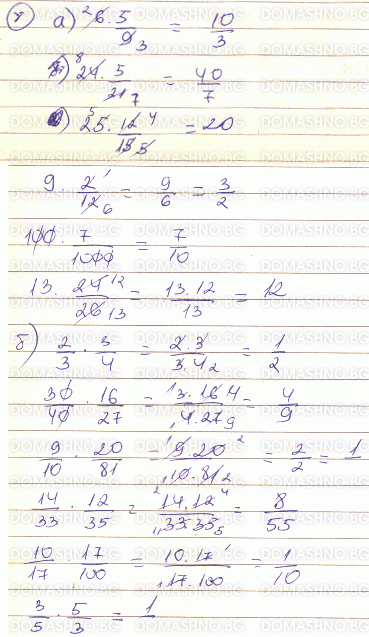 4) а) ²6·5/9 3 = 10/3
8 24·5/21 7 = 40/7
в) 5 25·12 4/15 3 = 20
9·2 1/12 6 = 9/6 = 3/2
100·7/1000 = 7/10
13·24 12/26 13 = 13.12/13 = 12
б) 2/3·3/4 = 2.3/3.4 2 = 1/2
30/40·16/27 = 1 3.16 4/1 4.27 9 = 4/9
9/10·20/81 = 1 9.20 2/1 10.81 2 = 2/2 = 1
14/33·12/35 = 2 14.12 4/11 33.35 5 = 8/55
10/17 17/100 = 10.17 1/1 17.100 = 1/10
3/5·5/3 = 1